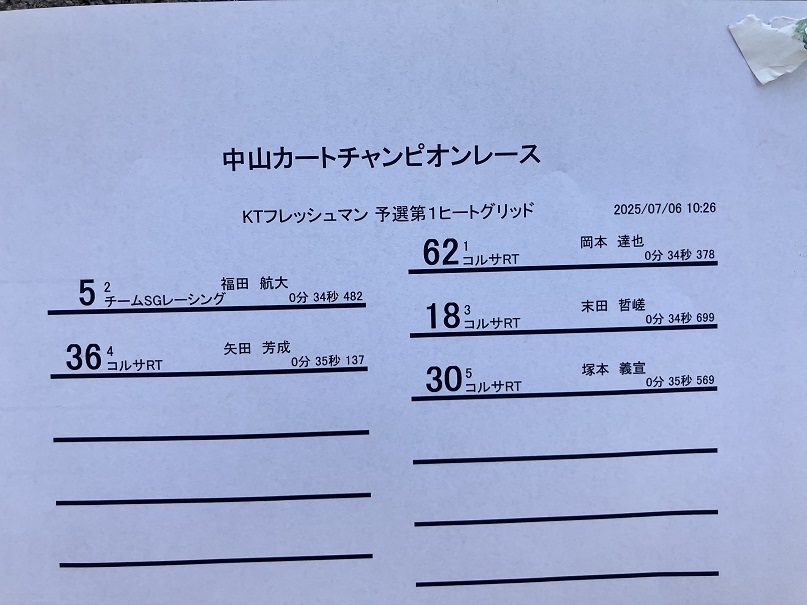 中山カートチャンピオンレース
KTフレッシュマン 予選第1ヒートグリッド
2025/07/06 10:26
62 1 岡本 達也
コルサRT 0分 34秒 378
5 2 福田 航大
チームSGレーシング 0分 34秒 482
18 3 末田 哲嵯
コルサRT 0分 34秒 699
36 4 矢田 芳成
コルサRT 0分 35秒 137
30 5 塚本 義宣
コルサRT 0分 35秒 569